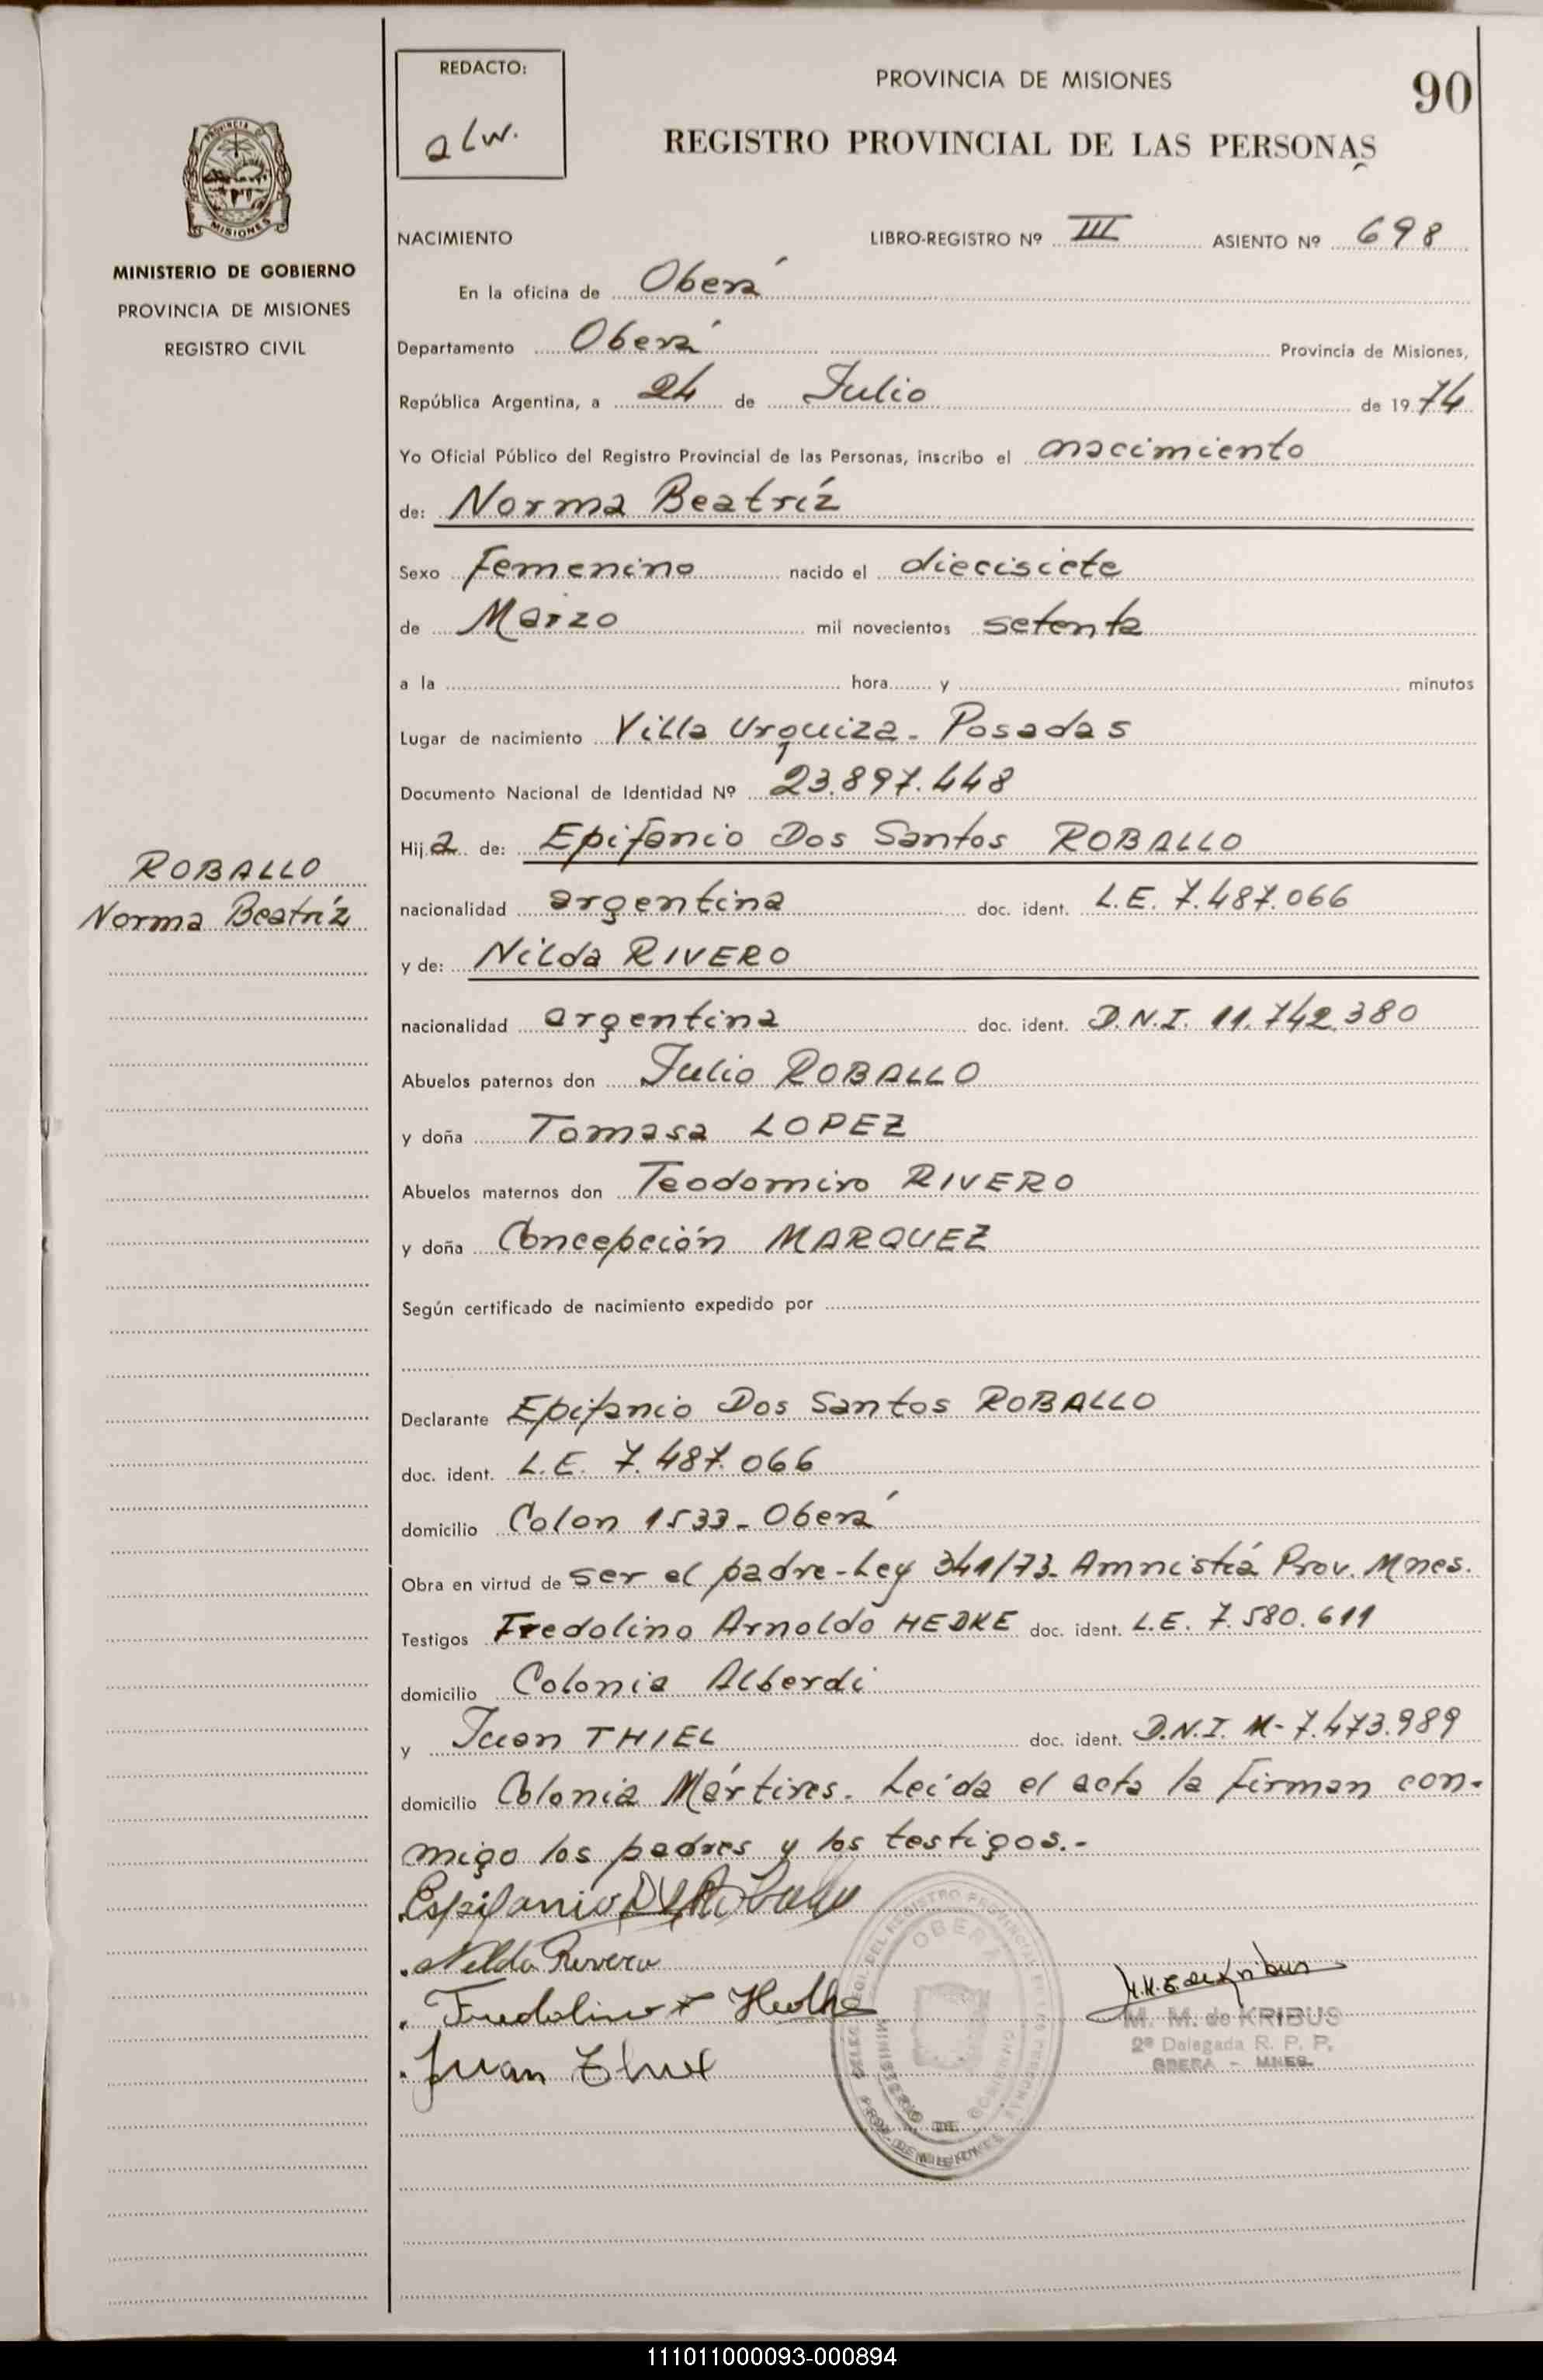 REDACTO:
alw.
PROVINCIA DE MISIONES
90
REGISTRO PROVINCIAL DE LAS PERSONAS
PROVINCIA
MISIONES
MINISTERIO DE GOBIERNO
PROVINCIA DE MISIONES
REGISTRO CIVIL
NACIMIENTO LIBRO-REGISTRO Nº III ASIENTO Nº 698
En la oficina de Oberá
Departamento Oberá Provincia de Misiones,
República Argentina, a 24 de Julio de 1974
Yo Oficial Público del Registro Provincial de las Personas, inscribo el nacimiento
de: Norma Beatríz
Sexo Femenino nacido el diecisiete
de Marzo mil novecientos setenta
a la hora y minutos
Lugar de nacimiento Villa Urquiza - Posadas
Documento Nacional de Identidad Nº 23.897.448
Hija de: Epifanio Dos Santos ROBALLO
ROBALLO
Norma Beatríz
nacionalidad argentina doc. ident. L.E. 7.487.066
y de: Nilda RIVERO
nacionalidad argentina doc. ident. D.N.I. 11.742.380
Abuelos paternos don Julio ROBALLO
y doña Tomasa LOPEZ
Abuelos maternos don Teodomiro RIVERO
y doña Concepción MARQUEZ
Según certificado de nacimiento expedido por
Declarante Epifanio Dos Santos ROBALLO
doc. ident. L.E. 7.487.066
domicilio Colon 1533 - Oberá
Obra en virtud de ser el padre - Ley 341/73 - Amnistiá Prov. Mnes.
Testigos Fredolino Arnoldo HEDKE doc. ident. L.E. 7.580.611
domicilio Colonia Alberdi
y Juan THIEL doc. ident. D.N.I. M- 7.473.989
domicilio Colonia Mártires. Leída el acta la firman con-
migo los padres y los testigos.-
Nilda Rivero
Juan Thiel
OBERA
MINISTERIO DE GOBIERNO
PROV. DE MISIONES
M. M. de KRIBUS
2ª Delegada R. P. P.
OBERA - MNES.
111011000093-000894